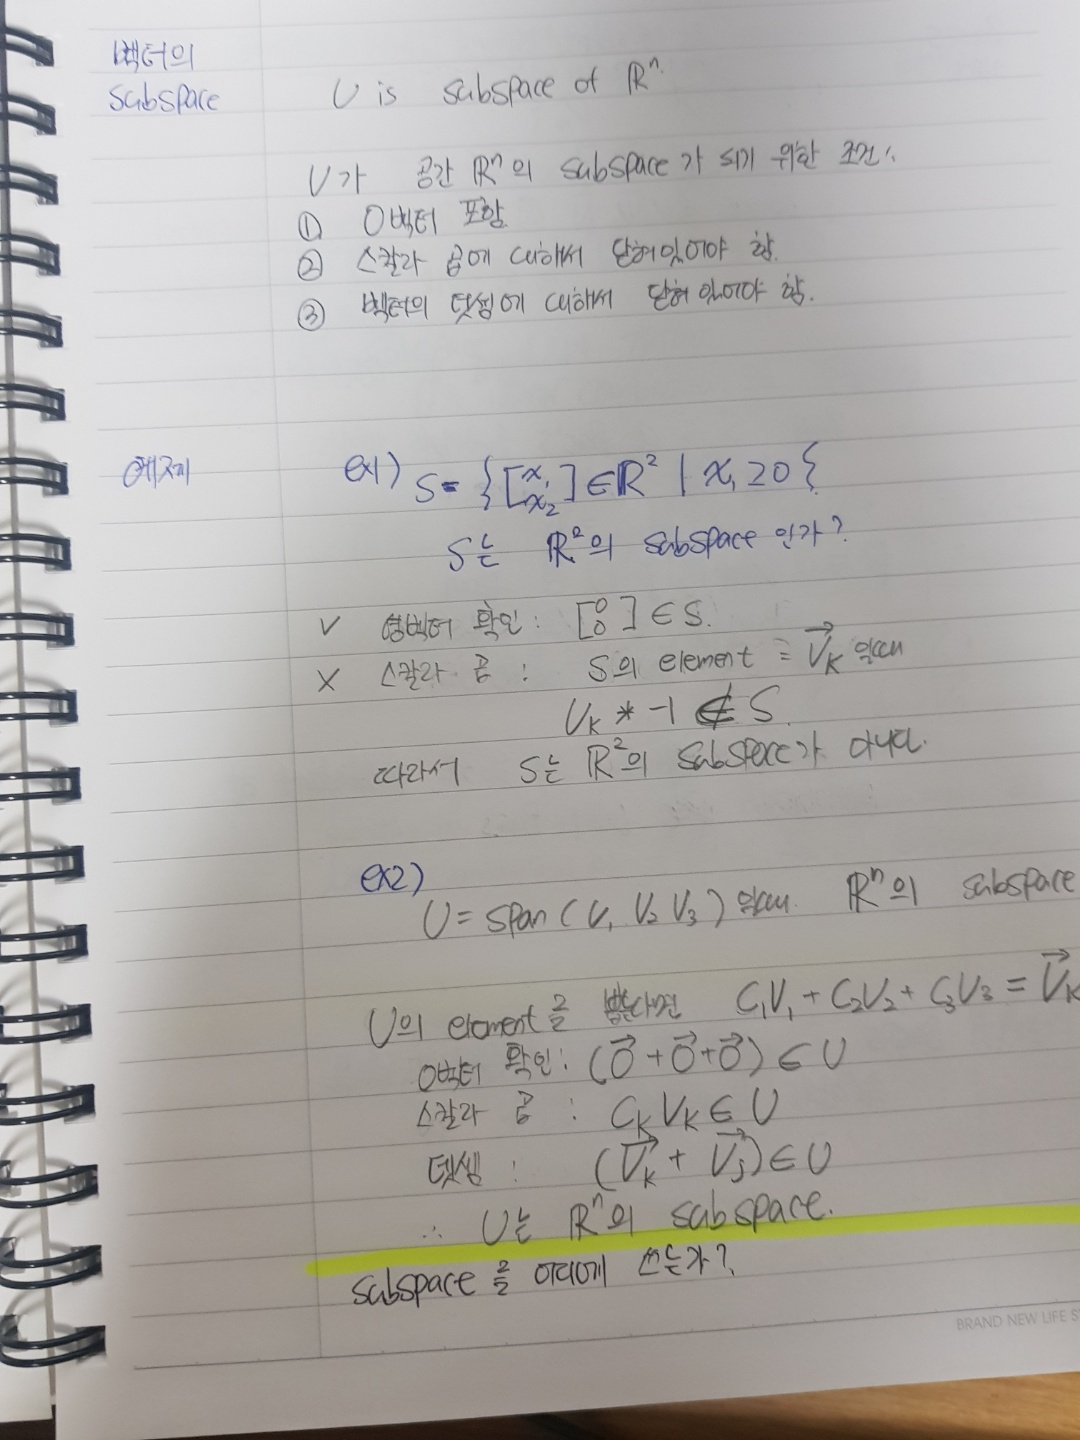 벡터의
subspace
U is subspace of ℝⁿ.
U가 공간 ℝⁿ의 subspace가 되기 위한 조건:
① 0벡터 포함.
② 스칼라 곱에 대해서 닫혀있어야 함.
③ 벡터의 덧셈에 대해서 닫혀 있어야 함.
예제
ex1) S = { [x₁ x₂] ∈ ℝ² | x₁ ≥ 0 }
S는 ℝ²의 subspace 인가?
V 영벡터 확인: [0 0] ∈ S.
X 스칼라 곱 : S의 element = V⃗ₖ 일때
Vₖ * -1 ∉ S.
따라서 S는 ℝ²의 subspace가 아니다.
ex2)
U = span (V₁ V₂ V₃) 일때. ℝⁿ의 subspace
U의 element를 뽑는다면 C₁V₁ + C₂V₂ + C₃V₃ = V⃗ₖ
0벡터 확인: (0⃗ + 0⃗ + 0⃗) ∈ U
스칼라 곱 : CₖVₖ ∈ U
덧셈 : (V⃗ₖ + V⃗ⱼ) ∈ U
∴ U는 ℝⁿ의 subspace.
subspace를 어디에 쓰는가?
BRAND NEW LIFE S